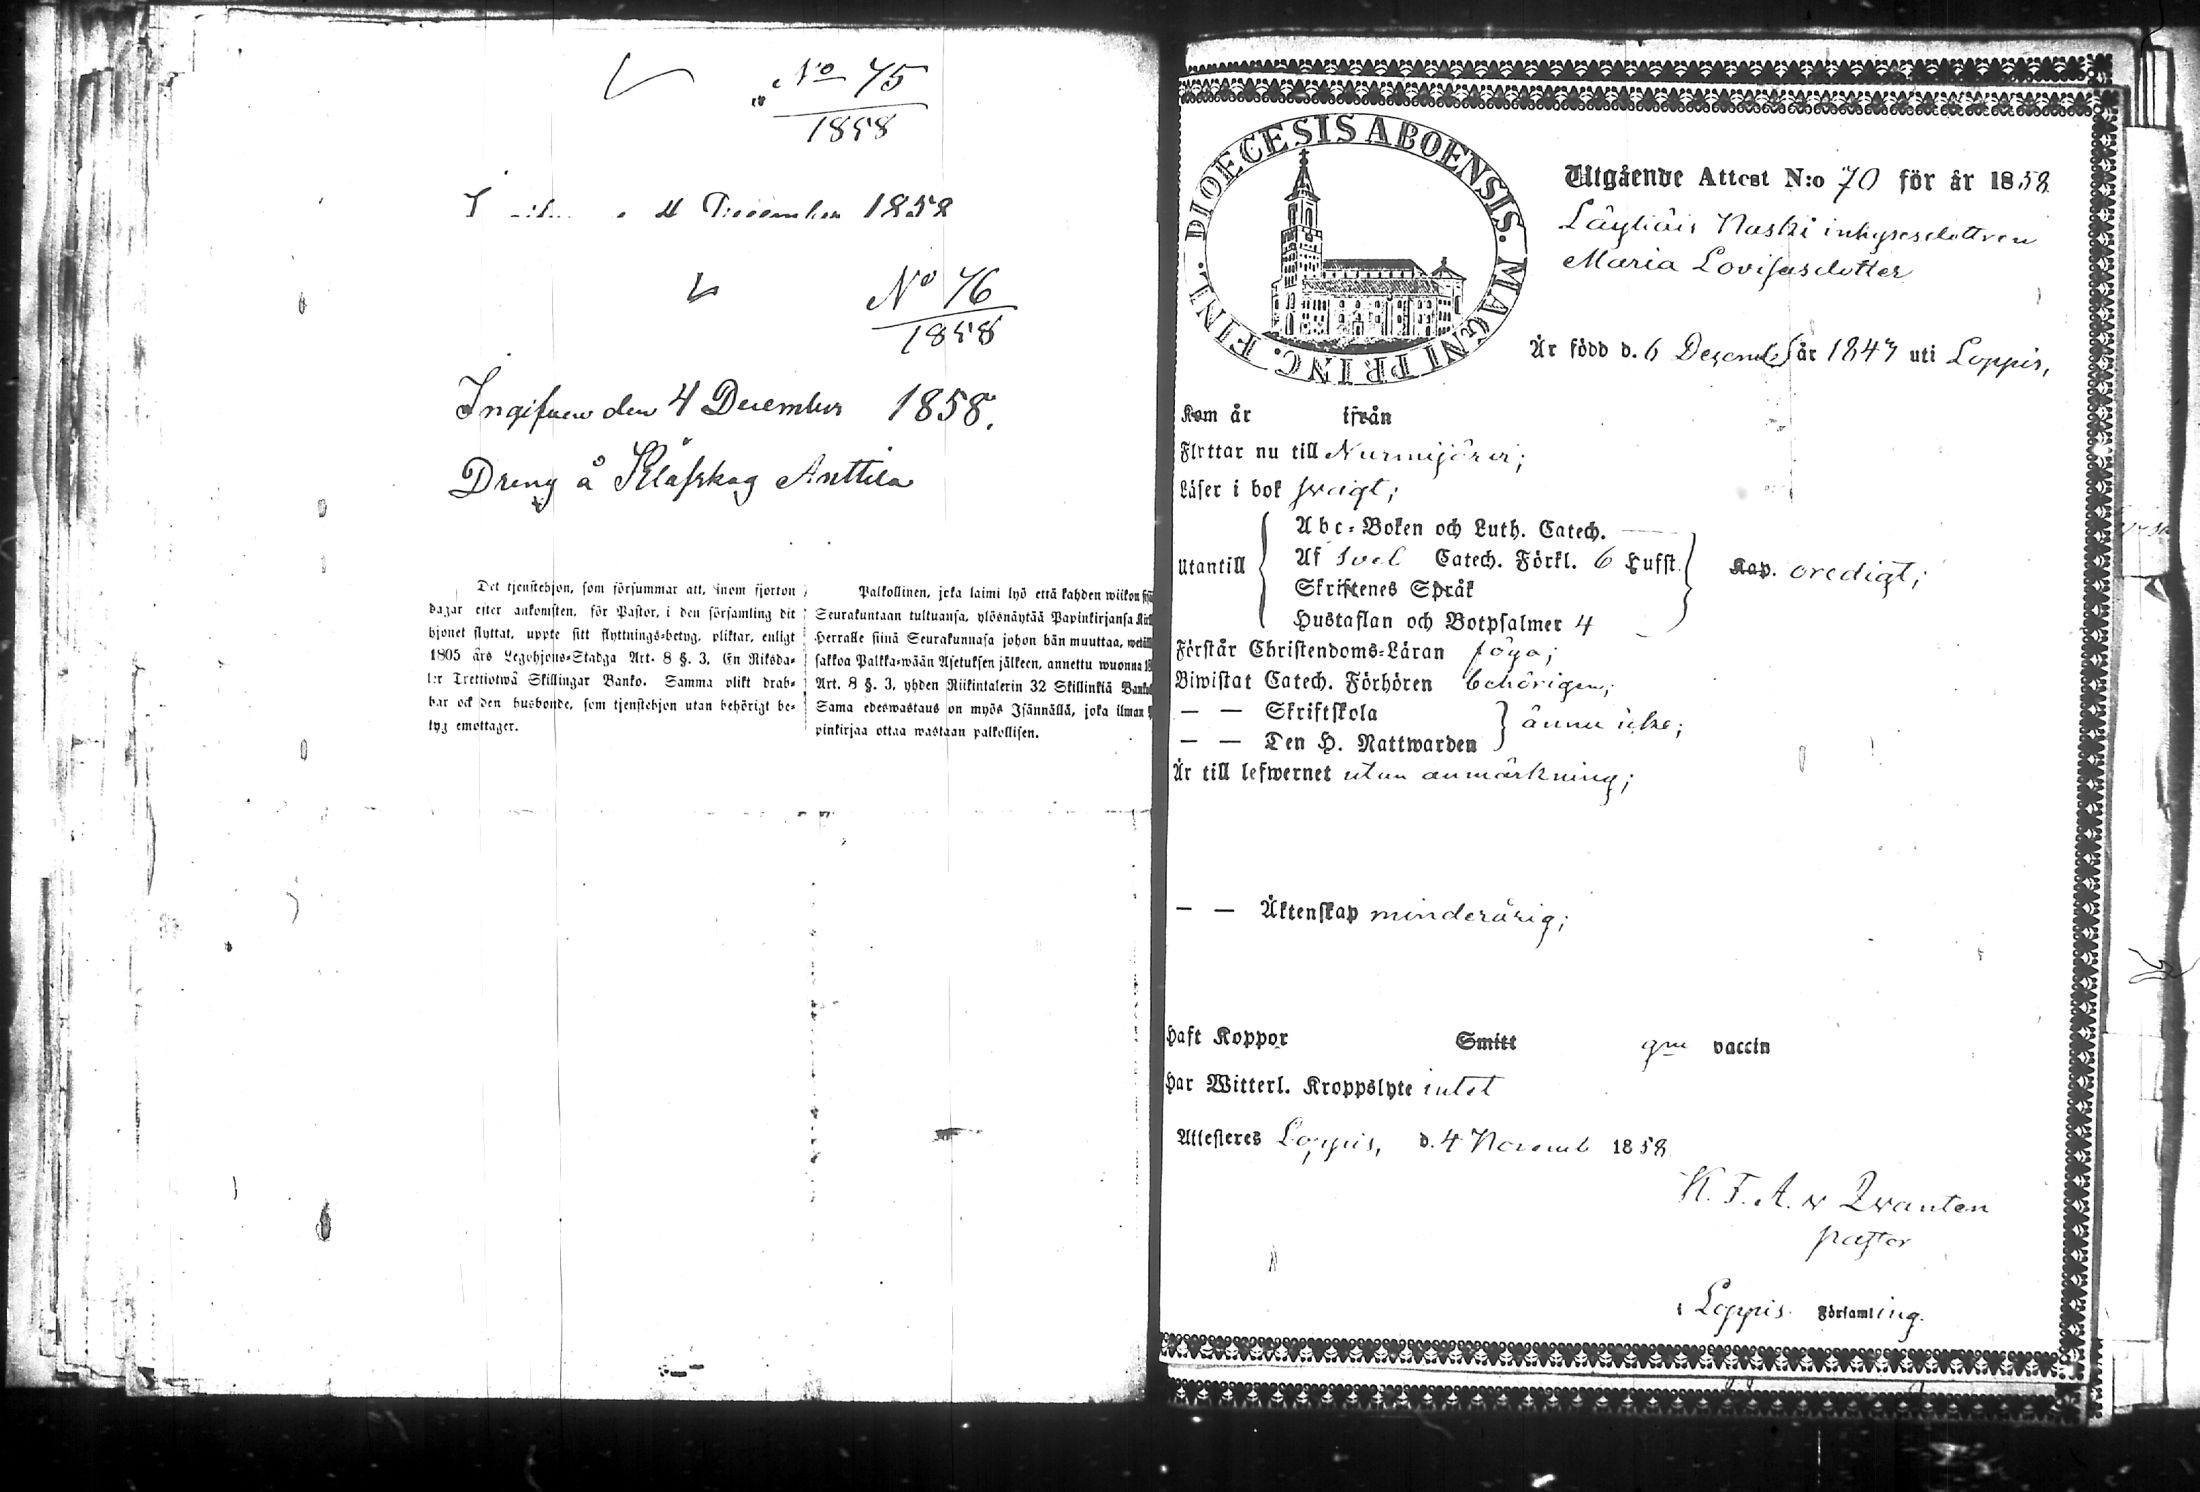 No 75
1858
4 December 1858
No 76
1858
Ingifven den 4 December 1858.
Dreng å Klåfskog Anttila
Det tjenstehjon, som försummar att, inom fjorton
dagar efter ankomsten, för Pastor, i den församling dit
hjonet flyttat, uppte sitt flyttnings-betyg, pliktar, enligt
1805 års Legohjons-Stadga Art. 8 §. 3, En Riksda-
ler Trettiotwå Skillingar Banko. Samma plikt drab-
bar ock den husbonde, som tjenstehjon utan behörigt be-
tyg emottager.
Palkollinen, joka laimi lyö että kahden wiikon
Seurakuntaan tultuansa, ylösnäytää Papinkirjansa
Herralle siinä Seurakunnasa johon hän muuttaa,
sakkoa Palkka-wään Asetuksen jälkeen, annettu wuonna
Art. 8 §. 3, yhden Riikintalerin 32 Skillinkiä
Sama edeswastaus on myös Isännällä, joka ilman
pinkirjaa ottaa wastaan palkollisen.
DIOECESIS ABOENSIS. MAGNI PRINC. FINL.
Utgående Attest N:o 70 för år 1858
Läyliäis Naski inhysesdottren
Maria Lovisasdotter
Är född d. 6 Decemb år 1843 uti Loppis,
Kom år ifrån
Flyttar nu till Nurmijärvi;
Läser i bok svagt;
Utantill
Abc-Boken och Luth. Catech.
Af Svel Catech. Förkl. 6 Hufst.
Skriftenes Språk
Hustaflan och Botpsalmer 4
Kap. oredigt;
Förstår Christendoms-Läran föga;
Biwistat Catech. Förhören behörigen;
— — Skriftskola
— — Den H. Nattwarden
ännu icke;
Är till lefwernet utan anmärkning;
— — Äktenskap minderårig;
Haft Koppor Smitt gm vaccin
Har Witterl. Kroppslyte intet
Attesteres Loppis, d. 4 Novemb 1858
K. F. A. v Qvanten
pastor
i Loppis Församling.